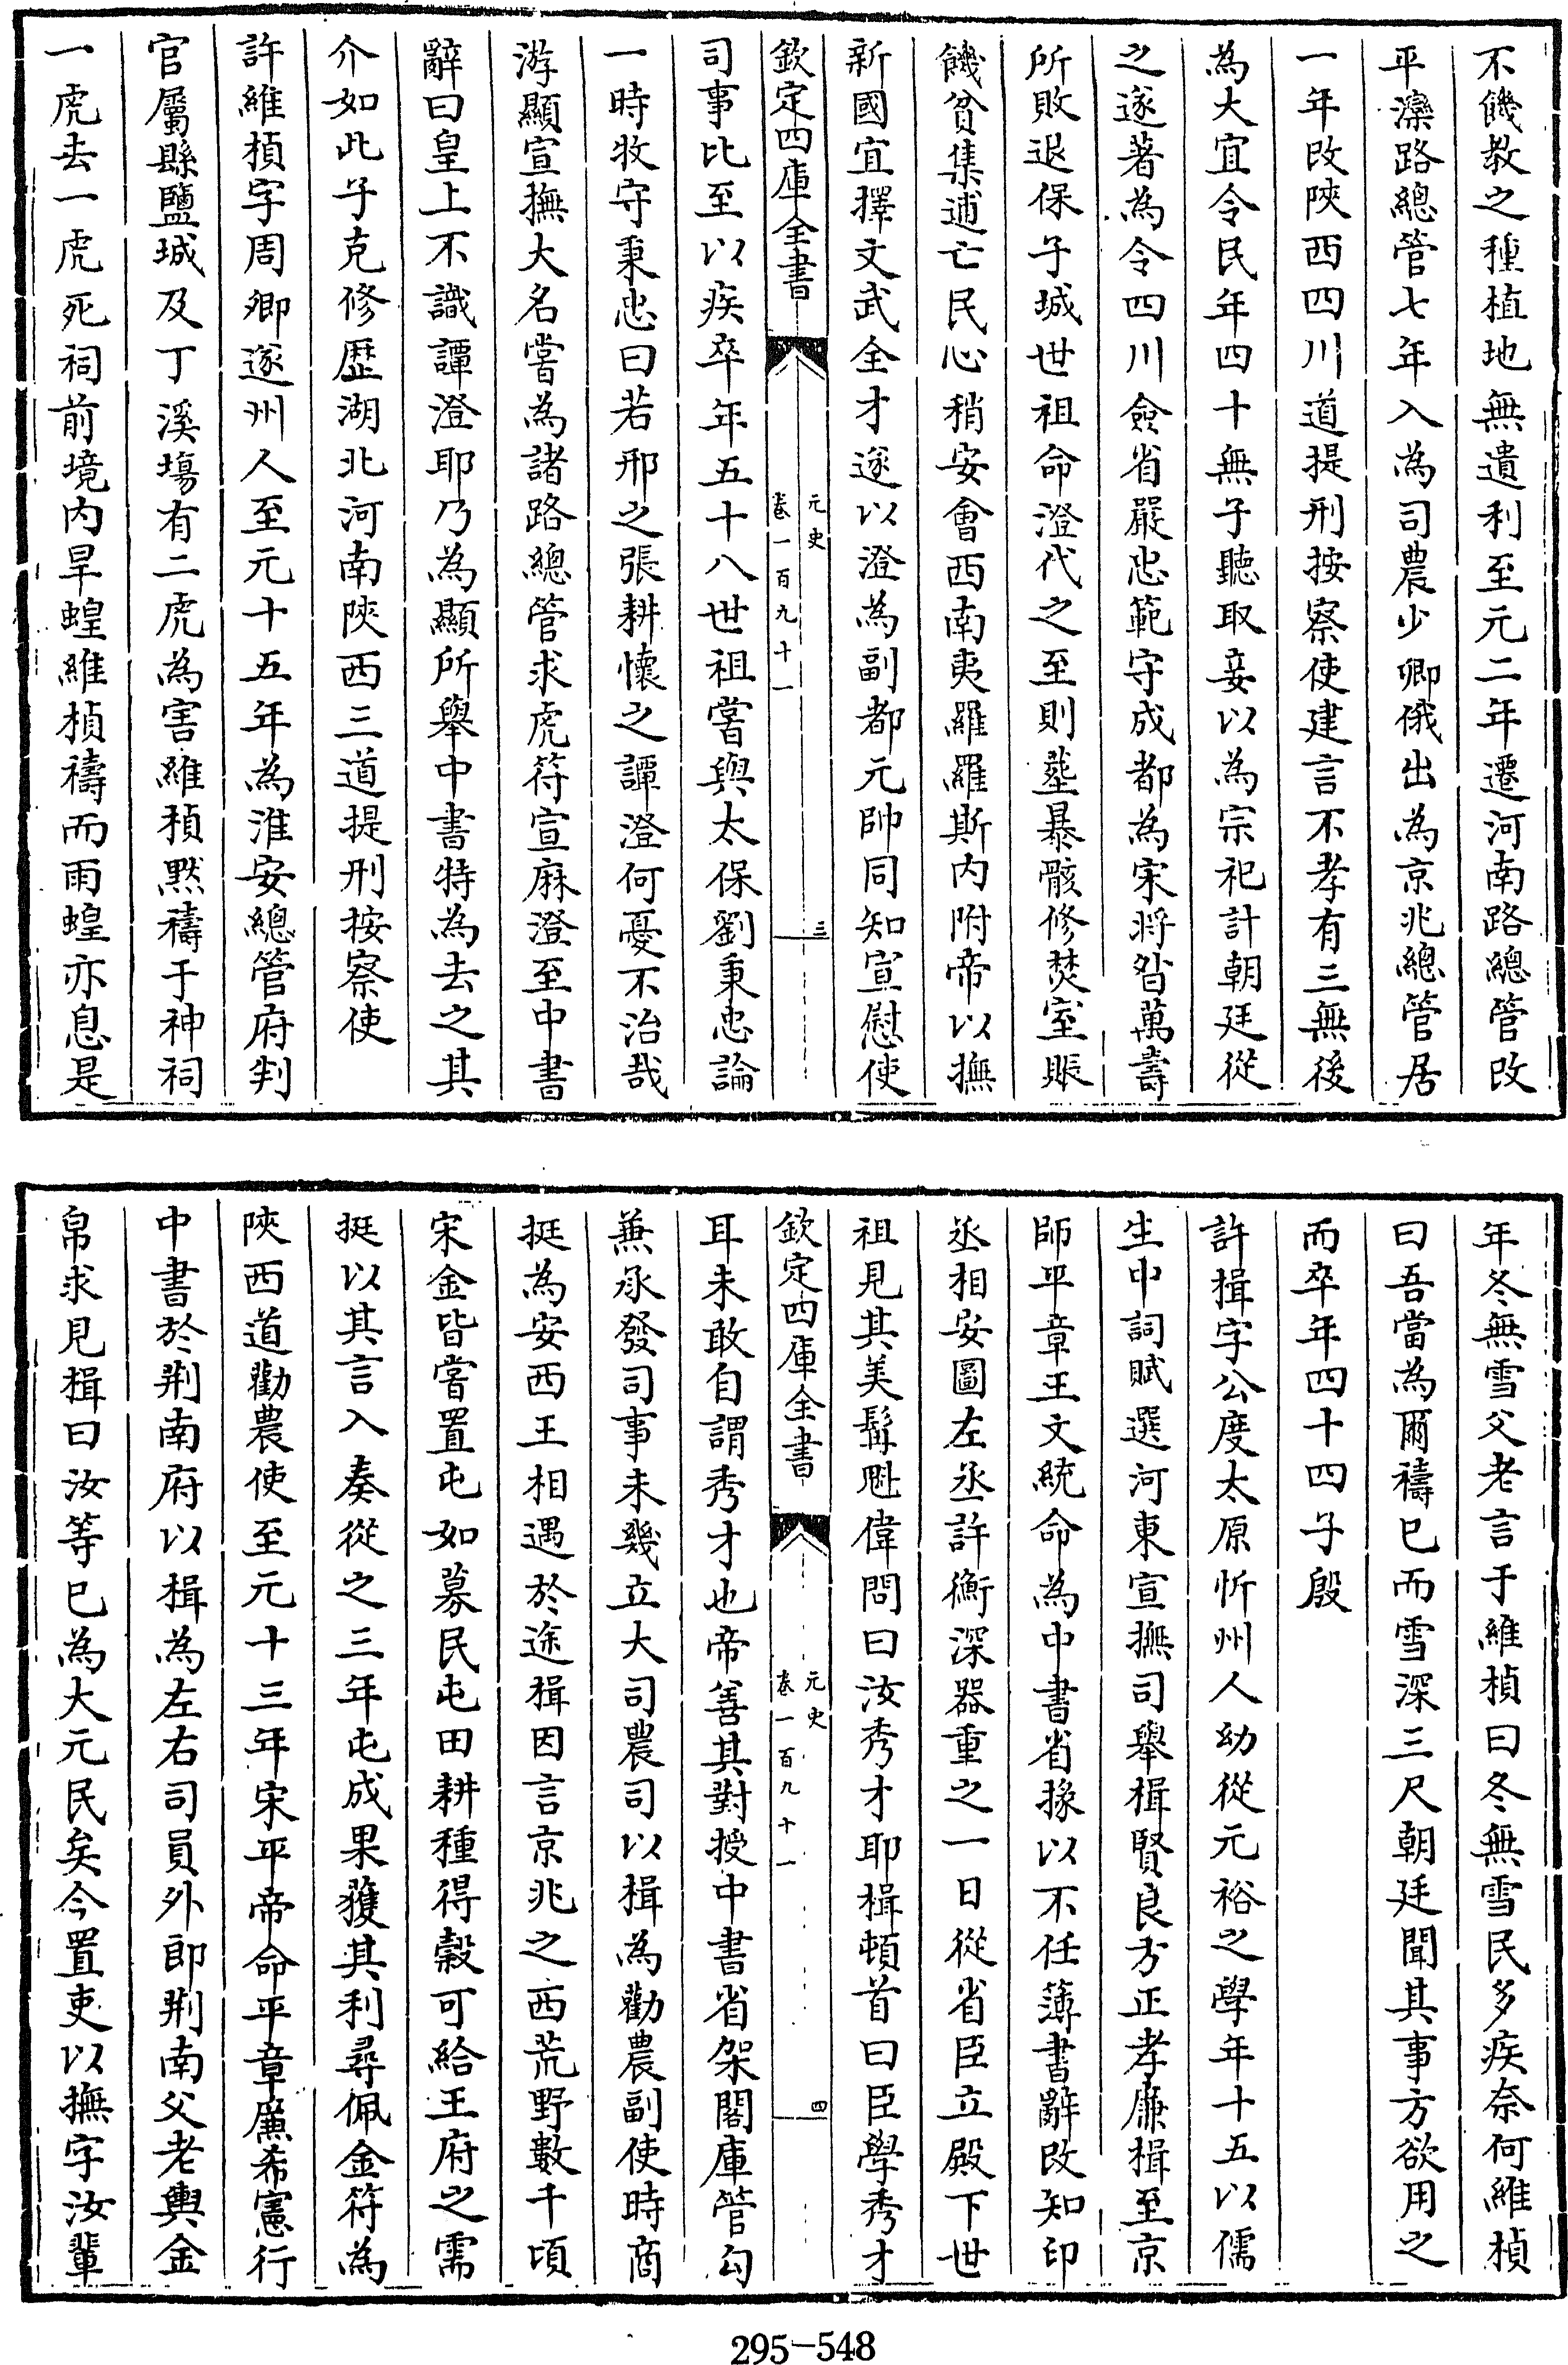 不饑教之種植地無遺利至元二年遷河南路總管改
平灤路總管七年入為司農少卿俄出為京兆總管居
一年改陜西四川道提刑按察使建言不孝有三無後
為大宜令民年四十無子聽取妾以為宗祀計朝廷從
之遂著為令四川僉省嚴忠範守成都為宋將昝萬壽
所敗退保子城世祖命澄代之至則塟暴骸修焚室賑
饑貧集逋亡民心稍安會西南夷羅羅斯内附帝以撫
新國宜擇文武全才遂以澄為副都元帥同知宣慰使
欽定四庫全書
元史
卷一百九十一
三
司事比至以疾卒年五十八世祖嘗與太保劉秉忠論
一時牧守秉忠曰若邢之張耕懷之譚澄何憂不治哉
游顯宣撫大名嘗為諸路總管求虎符宣麻澄至中書
辭曰皇上不識譚澄耶乃為顯所舉中書特為去之其
介如此子克修歴湖北河南陜西三道提刑按察使
許維楨字周卿遂州人至元十五年為淮安總管府判
官屬縣鹽城及丁溪塲有二虎為害維楨黙禱于神祠
一虎去一虎死祠前境内旱蝗維楨禱而雨蝗亦息是
年冬無雪父老言于維楨曰冬無雪民多疾奈何維楨
曰吾當為爾禱已而雪深三尺朝廷聞其事方欲用之
而卒年四十四子殷
許楫字公度太原忻州人幼從元裕之學年十五以儒
生中詞賦選河東宣撫司舉楫賢良方正孝廉楫至京
師平章王文統命為中書省掾以不任簿書辭改知印
丞相安圖左丞許衡深器重之一日從省臣立殿下世
祖見其美髯魁偉問曰汝秀才耶楫頓首曰臣學秀才
欽定四庫全書
元史
卷一百九十一
四
耳未敢自謂秀才也帝善其對授中書省架閣庫管勾
兼承發司事未幾立大司農司以楫為勸農副使時商
挺為安西王相遇於途楫因言京兆之西荒野數千頃
宋金皆嘗置屯如募民屯田耕種得穀可給王府之需
挺以其言入奏從之三年屯成果獲其利尋佩金符為
陜西道勸農使至元十三年宋平帝命平章廉希憲行
中書於荆南府以楫為左右司員外郎荆南父老輿金
帛求見楫曰汝等已為大元民矣今置吏以撫字汝輩
295-548